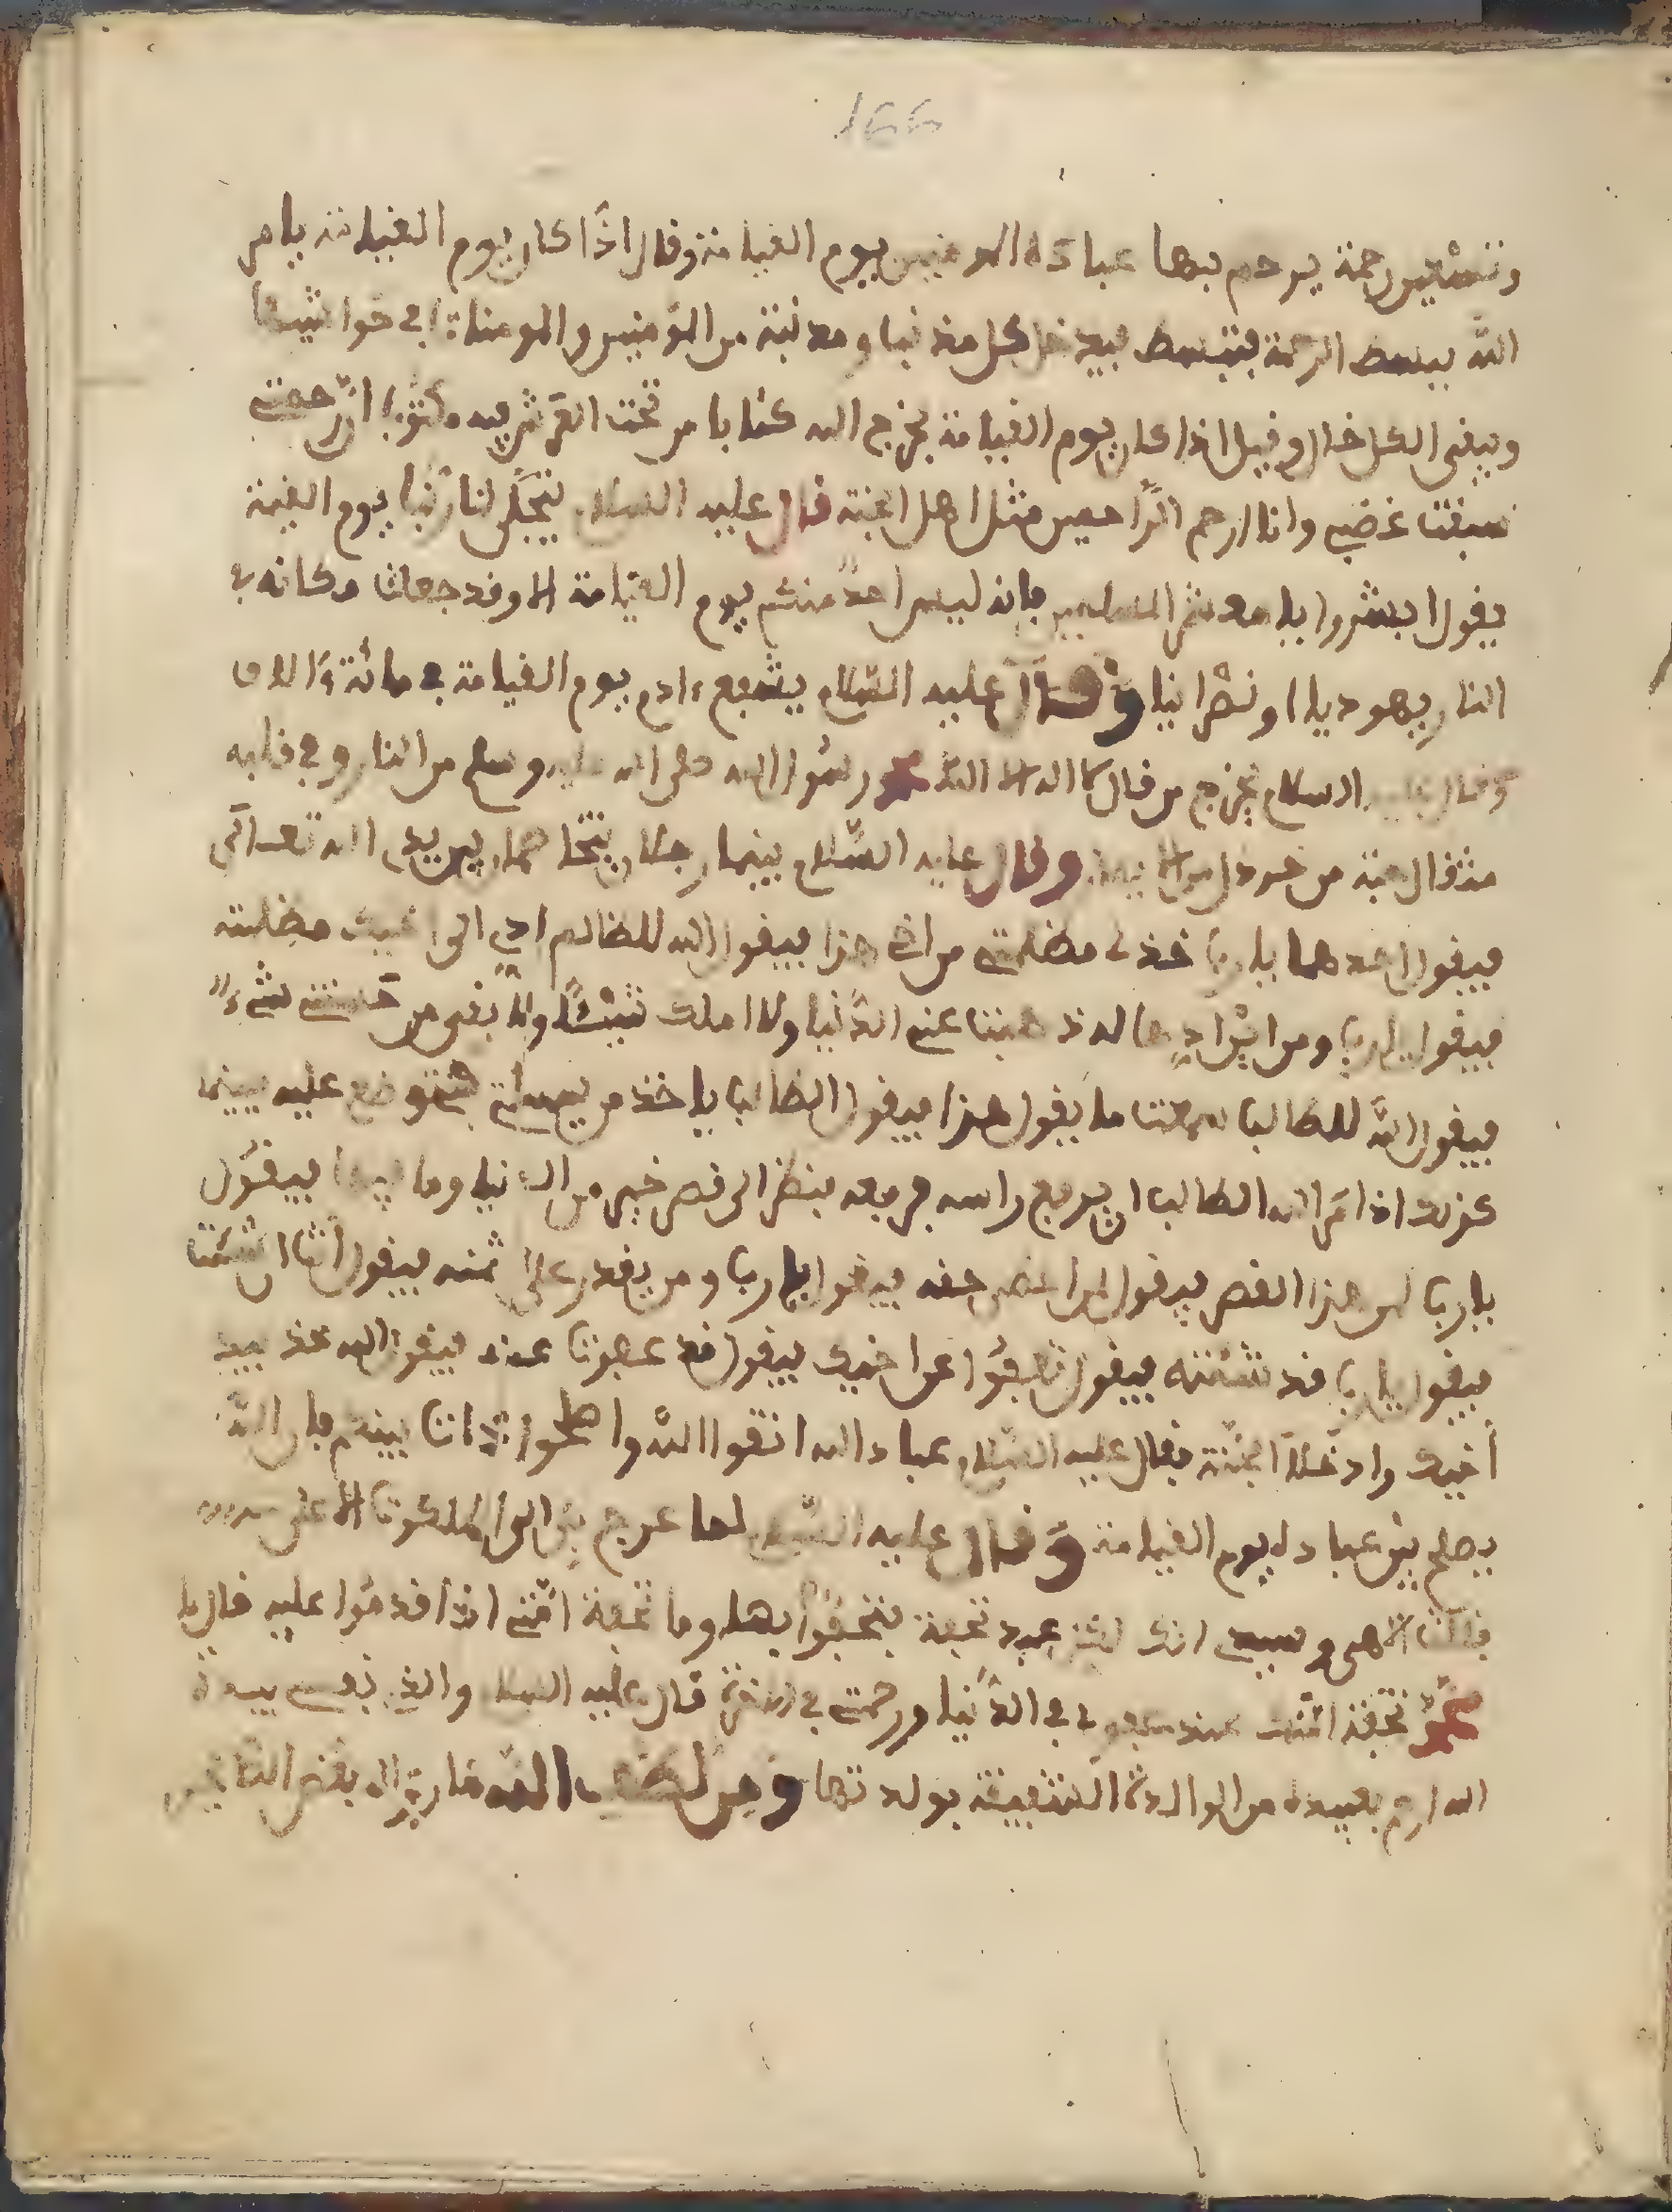 166
وتسعين رحمة يرحم بها عباده المومنين يوم القيامة وقال اذا كان يوم القيامة يامر
الله ببسط الرحمة فتبسط فيدخل كل مذنبا ومذنبة من المؤمنين والمومنات في حواشيها
ويبقى الكل خال وقيل اذا كان يوم القيامة يخرج الله كتابا من تحت العرش فيه مكتوب ان رحمتي
سبقت غضبي وانا ارحم الراحمين مثل اهل الجنة قال عليه السلام يتجلى لنا ربنا يوم القيمة
يقول ابشروا يا معشر المسلمين فانه ليس احد منكم يوم القيامة الا وقد جعلت مكانه في
النار يهوديا او نصرانيا وقال عليه السلام يشفع ءادم يوم القيامة في مائة ءالاف
وقال عليه السلام يخرج من قال لا اله الا الله محمد رسول الله صلى الله عليه وسلم من النار وفي قلبه
مثقال حبة من خردل من وقال عليه السلام بينما رجلان يتخاصمان بين يدي الله تعالى
فيقول احدهما يا رب خذ لي مظلمتي من اخي هذا فيقول الله للظالم ادي الى اخيك مظلمته
فيقول يا رب ومن اين ادها له ذهبت عني الدنيا ولا املك شيئا ولا بقى من حسنتي شيء
فيقول الله للطالب سمعت ما يقول هذا فيقول الطالب ياخذ من عليه فبينما
كذلك اذ امر الله الطالب ان يرفع راسه فرفعه فنظر الى قصر خير من الدنيا وما فيها فيقول
يا رب لمن هذا القصر فيقول لمن حقه فيقول يا رب ومن يقدر على ثمنه فيقول انت ان شئت
فيقول يا رب قد شئته فيقول عن اخيك فيقول قد عفوت عنه فيقول الله خذ بيد
أخيك وادخلا الجنة فقال عليه السلام عباد الله اتقوا الله واصلحوا ذات بينكم فان الله
يصلح بين عباده يوم القيامة وقال عليه السلام لما عرج بي الى الملكوت الاعلى
قلت الاهي وسيدي لكل عبد تحفة يتحفوا بها وما تحفة امتي اذا قدموا عليه قال يا
محمد تحفة امتك عندي في الدنيا ورحمتي في الاخرة قال عليه السلام والذي نفسي بيده
الله ارحم بعبده من الوالدة الشفيقة بولدتها ومن لطف الله